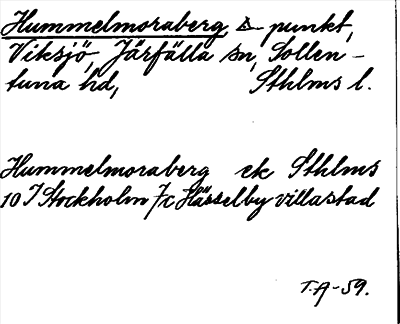 Hummelmoraberg, △-punkt,
Viksjö, Järfälla sn, Sollen-
tuna hd, Sthlms l.
Hummelmoraberg ek Sthlms
10 I Stockholm 7c Hässelby villastad
T.A-59.